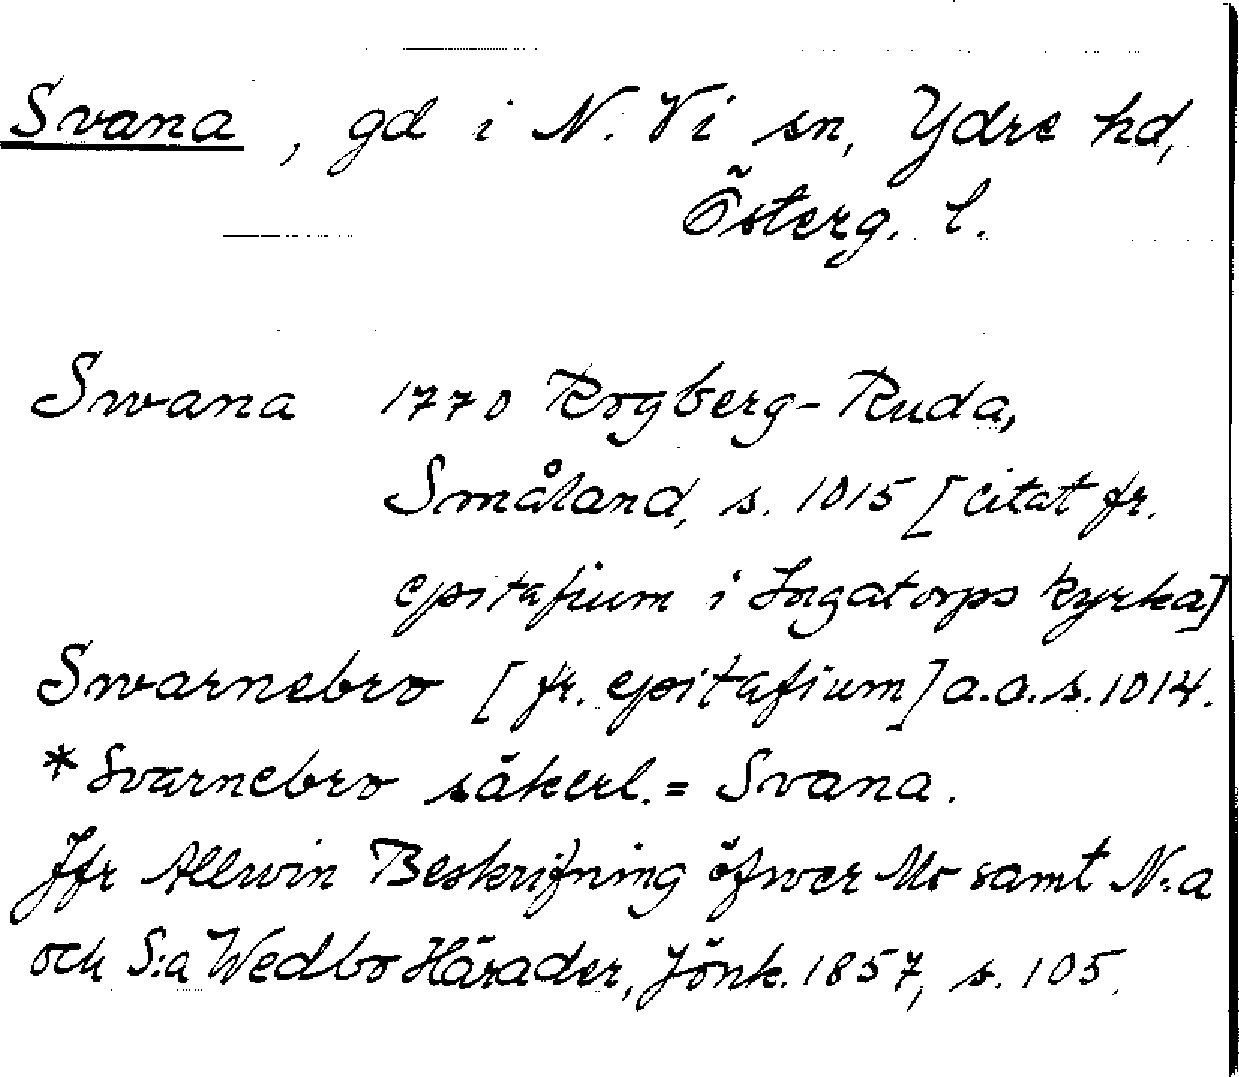 Svana, gd i N. Vi sn, Ydre hd,
Österg. l.
Swana 1770 Rogberg-Ruda,
Småland, s. 1015 [citat fr.
epitafium i Ingatorps kyrka]
Swarnebro [fr. epitafium] a.a.s. 1014.
*Svarnebro säkerl. = Svana.
Jfr Allwin Beskrifning öfwer Mo samt N:a
och S:a Wedbo Härader, Jönk. 1857, s. 105.